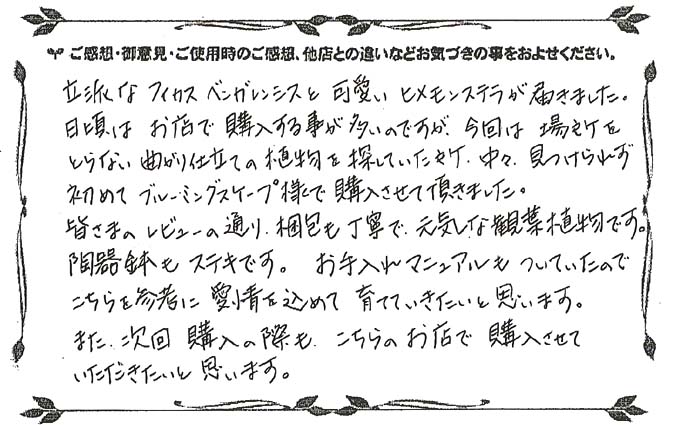 ご感想・御意見・ご使用時のご感想、他店との違いなどお気づきの事をおよせください。
立派な フィカス ベンガレンシスと 可愛い ヒメモンステラが 届きました。
日頃は お店で 購入する事が 多いのですが、今回は 場所を
とらない 曲がり仕立ての 植物を 探していた所、中々、見つけられず
初めて ブルーミングスケープ様で 購入させて 頂きました。
皆さまの レビューの 通り、梱包も 丁寧で、元気な 観葉植物です。
陶器鉢も ステキです。 お手入れマニュアルも ついていたので
こちらを 参考に 愛情を 込めて 育てていきたいと 思います。
また、次回 購入の 際も、こちらの お店で 購入させて
いただきたいと 思います。